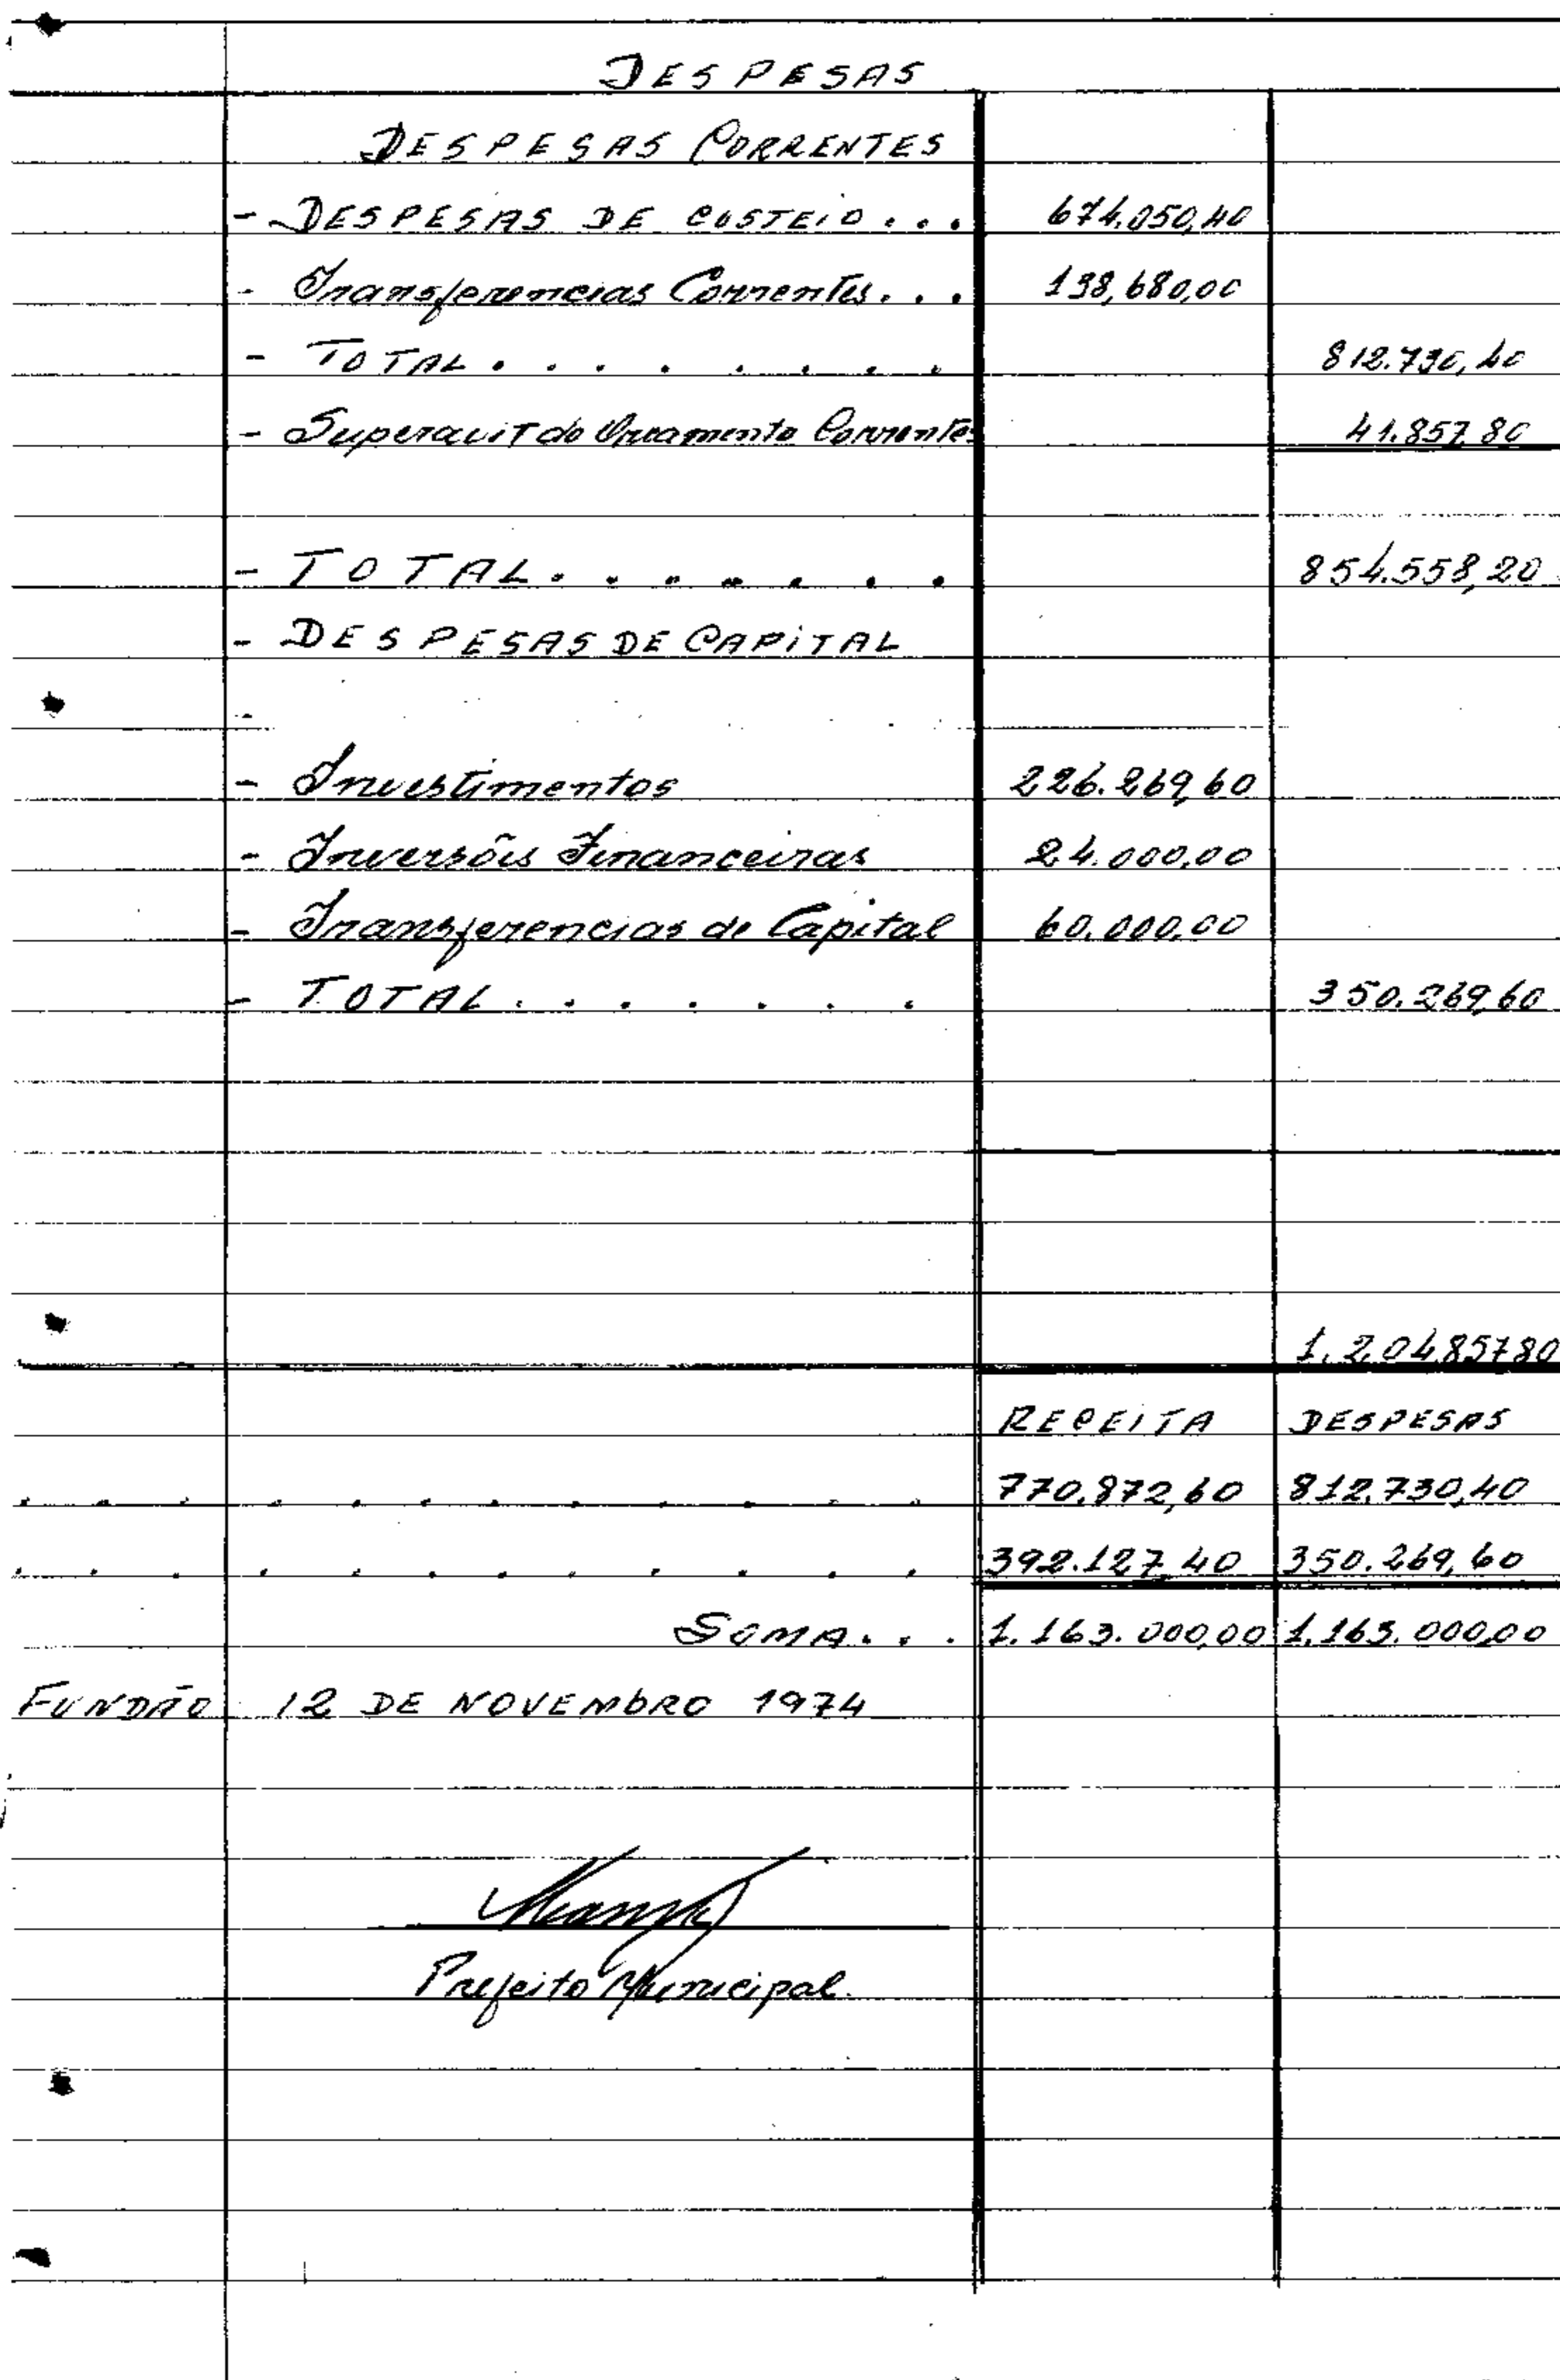 DESPESAS
DESPESAS CORRENTES
- DESPESAS DE CUSTEIO . . . 674.050,40
- Transferencias Correntes. . . 138,680,00
- TOTAL . . . . . . . 812.730,40
- Superavit do Orcamento Correntes 41.857,80
- TOTAL . . . . . . . 854.558,20
- DESPESAS DE CAPITAL
-
- Investimentos 226.269,60
- Inversões Financeiras 24.000,00
- Transferencias de Capital 60.000,00
- TOTAL . . . . . . 350.269,60
1.204.857 80
RECEITA DESPESAS
. . . . . . . . . . . . . 770.872,60 812.730,40
. . . . . . . . . . . . . 392.127,40 350.269,60
SOMA. . . 1.163.000,00 1.163.000,00
FUNDÃO 12 DE NOVEMBRO 1974
Prefeito Municipal.